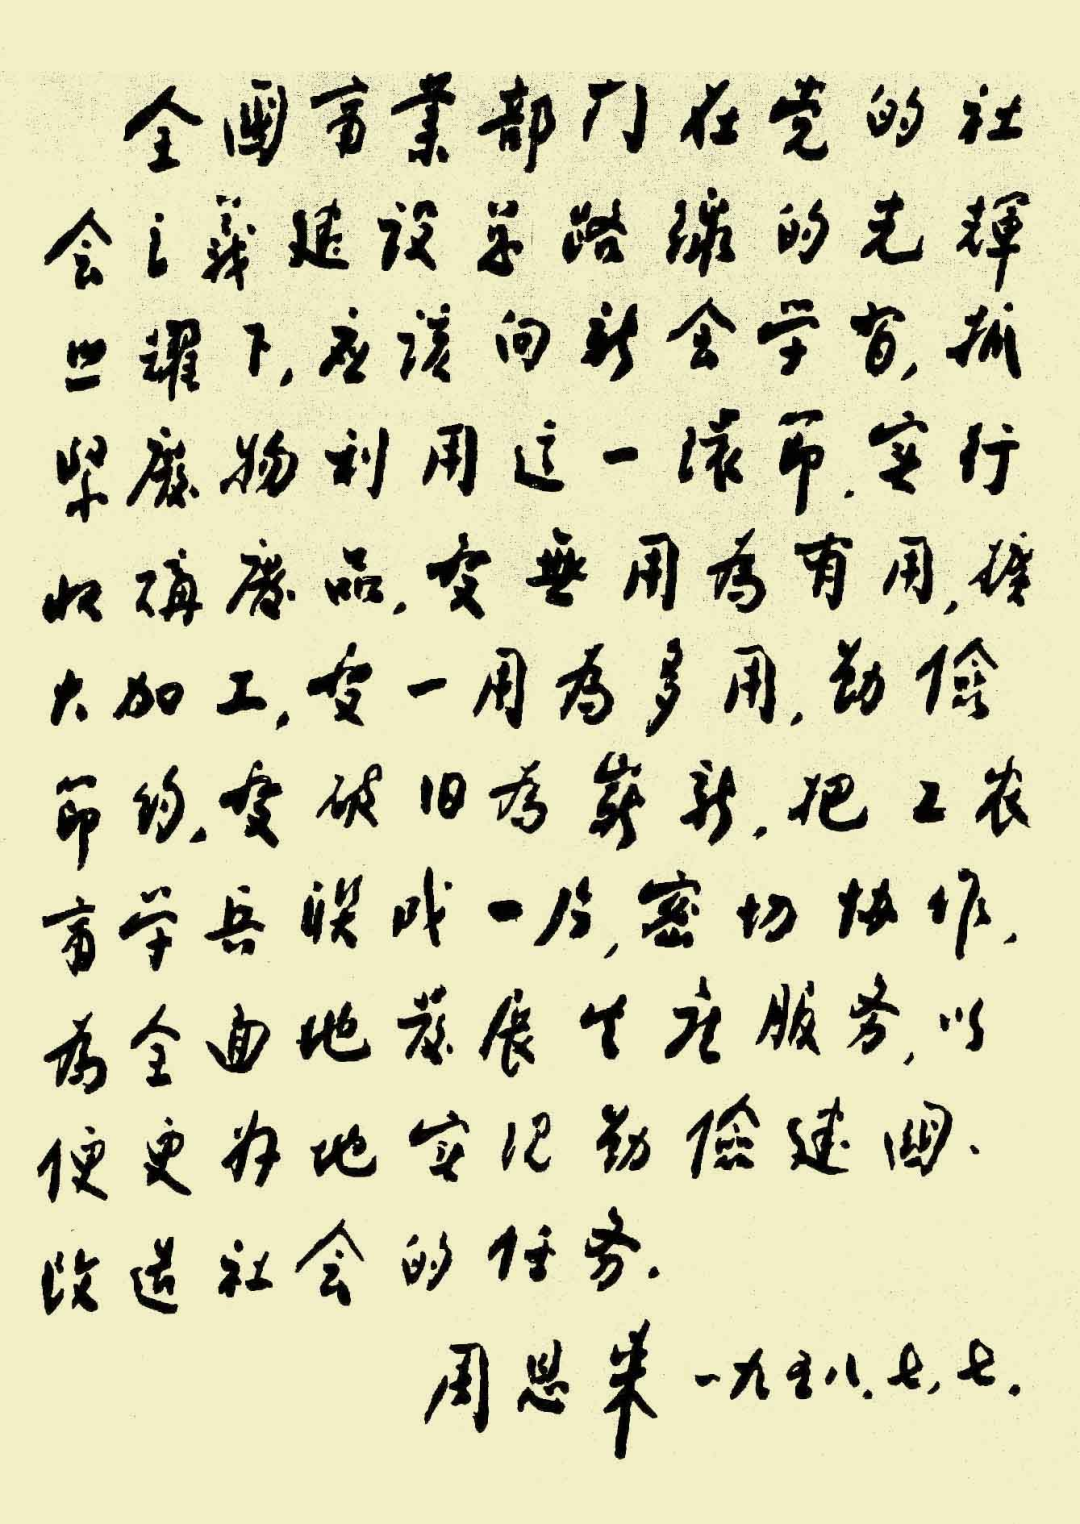 全国商業部门在党的社
会主義建设总路線的光輝
照耀下,应该向新会学習,抓
緊廢物利用这一環節.实行
收購廢品,变無用為有用,擴
大加工,变一用為多用,勤儉
節约,变破旧為嶄新.把工农
商学兵联成一片,密切协作,
為全面地發展生产服务,以
便更好地实现勤儉建国、
改造社会的任务.
周恩来 一九五八.七.七.